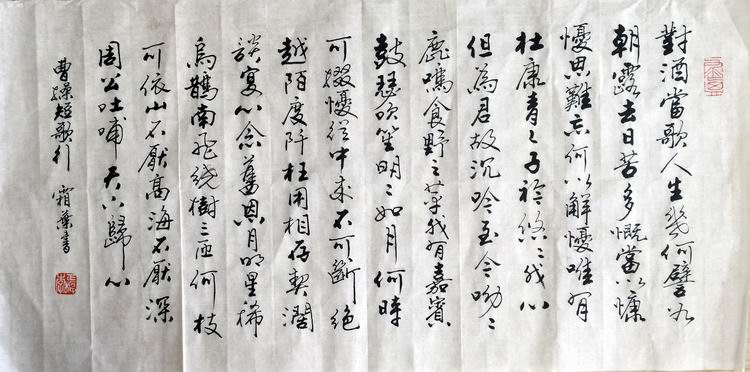 對酒當歌人生幾何譬如
朝露去日苦多慨當以慷
懮思難忘何以解懮唯有
杜康青々子衿悠々我心
但為君故沉吟至今呦々
鹿鳴食野之苹我有嘉賓
鼓瑟吹笙明々如月何時
可掇懮從中來不可斷絕
越陌度阡枉用相存契濶
談宴心念舊恩月明星稀
烏鵲南飛繞樹三匝何枝
可依山不厭高海不厭深
周公吐哺天下歸心
曹操短歌行 霜葉書